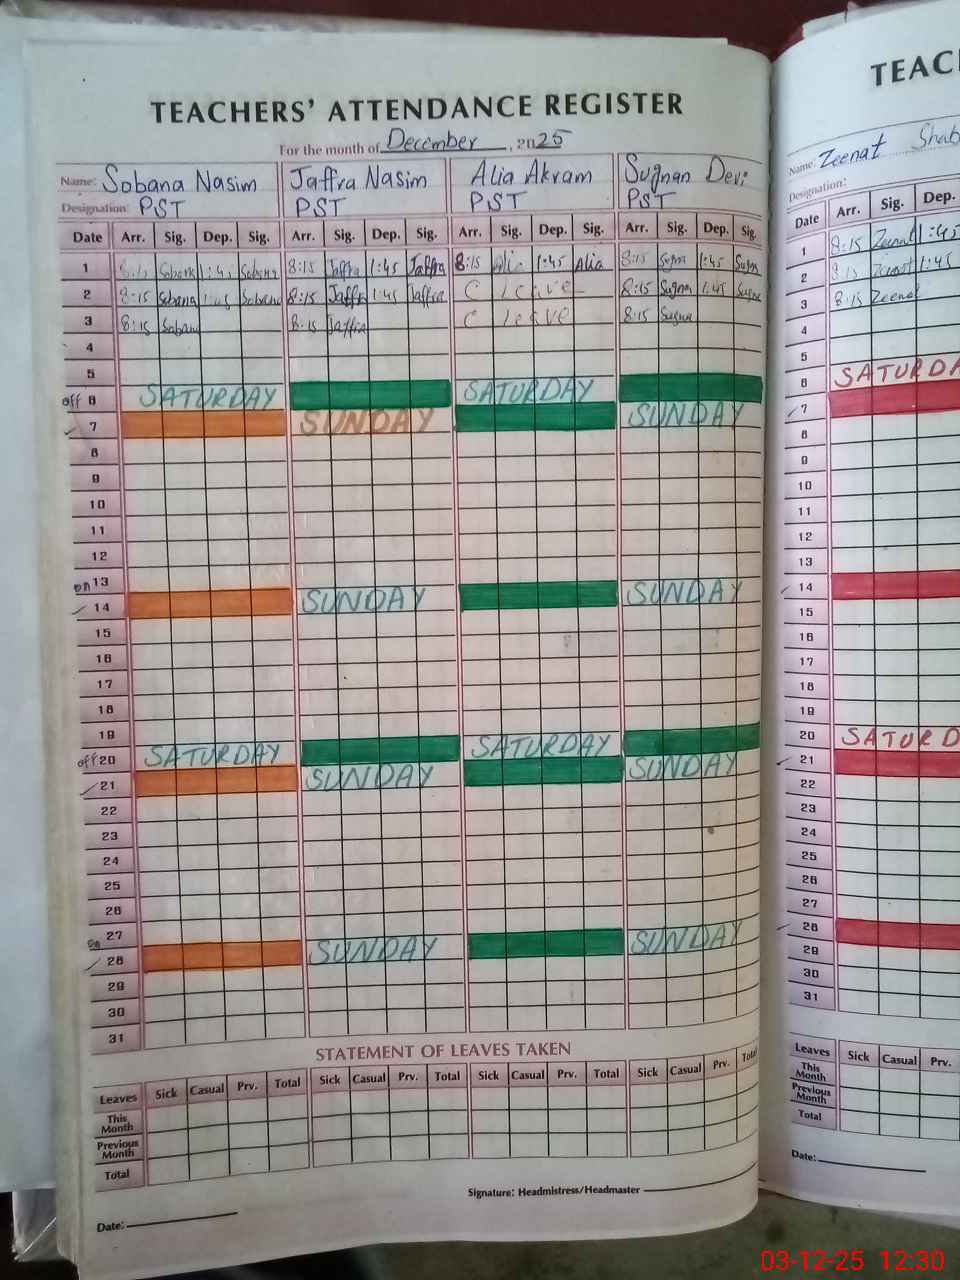 TEACHERS' ATTENDANCE REGISTER
For the month of December, 2025
Name: Sobana Nasim Jaffra Nasim Alia Akram Sugnan Devi
Designation: PST PST PST PST
Date Arr. Sig. Dep. Sig. Arr. Sig. Dep. Sig. Arr. Sig. Dep. Sig. Arr. Sig. Dep. Sig.
1 8:15 Sobana 1:45 Sobana 8:15 Jaffra 1:45 Jaffra 8:15 Alia 1:45 Alia 8:15 Sugna 1:45 Sugna
2 8:15 Sobana 1:45 Sobana 8:15 Jaffra 1:45 Jaffra C leave 8:15 Sugna 1:45 Sugna
3 8:15 Sobana 8:15 Jaffra C leave 8:15 Sugna
4
5
off 6 SATURDAY SATURDAY
7 SUNDAY SUNDAY
8
9
10
11
12
on 13
14 SUNDAY SUNDAY
15
16
17
18
19
off 20 SATURDAY SATURDAY
21 SUNDAY SUNDAY
22
23
24
25
26
on 27
28 SUNDAY SUNDAY
29
30
31
STATEMENT OF LEAVES TAKEN
Leaves Sick Casual Prv. Total Sick Casual Prv. Total Sick Casual Prv. Total Sick Casual Prv. Total
This Month
Previous Month
Total
Signature: Headmistress/Headmaster
Date:
TEAC
Name: Zeenat Shab
Designation:
Date Arr. Sig. Dep.
1 8:15 Zeenat 1:45
2 8:15 Zeenat 1:45
3 8:15 Zeenat
4
5
6 SATURDA
7
8
9
10
11
12
13
14
15
16
17
18
19
20 SATURD
21
22
23
24
25
26
27
28
29
30
31
Leaves Sick Casual Prv.
This Month
Previous Month
Total
Date:
03-12-25 12:30